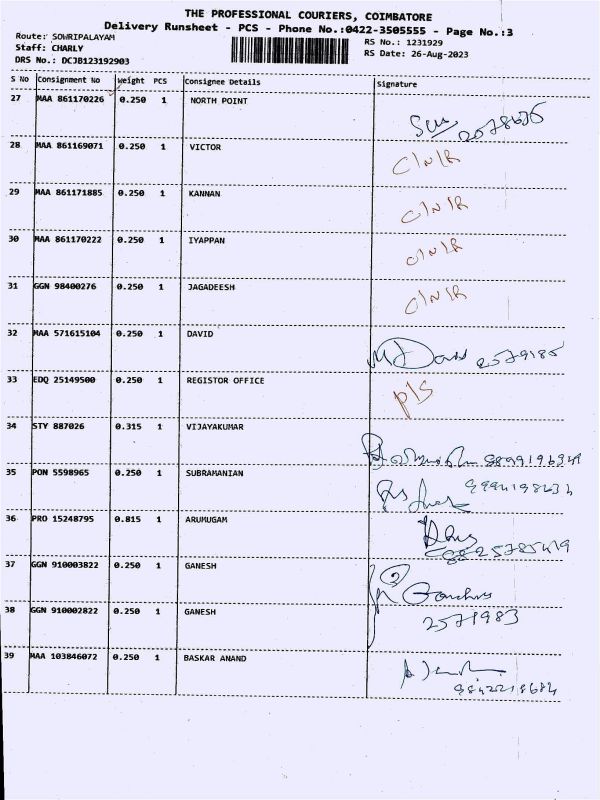 THE PROFESSIONAL COURIERS, COIMBATORE
Delivery Runsheet - PCS - Phone No.:0422-3505555 - Page No.:3
Route: SOWRIPALAYAM
RS No.: 1231929
Staff: CHARLY
RS Date: 26-Aug-2023
DRS No.: DCJB123192903
S No Consignment No Weight PCS Consignee Details Signature
27 MAA 861170226 0.250 1 NORTH POINT
28 MAA 861169071 0.250 1 VICTOR C/N/R
29 MAA 861171885 0.250 1 KANNAN C/N/R
30 MAA 861170222 0.250 1 IYAPPAN C/N/R
31 GGN 98400276 0.250 1 JAGADEESH C/N/R
32 MAA 571615104 0.250 1 DAVID
33 EDQ 25149500 0.250 1 REGISTOR OFFICE P/S
34 STY 887026 0.315 1 VIJAYAKUMAR
35 PON 5598965 0.250 1 SUBRAMANIAN
36 PRO 15248795 0.815 1 ARUMUGAM
37 GGN 910003822 0.250 1 GANESH
38 GGN 910002822 0.250 1 GANESH 2571983
39 MAA 103846072 0.250 1 BASKAR ANAND